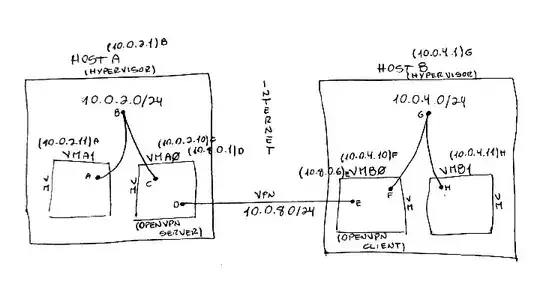 (10.0.2.1)B
HOST A
(HYPERVISOR)
10.0.2.0/24
B
(10.0.2.11)A
VMA1
A
VM
(10.0.2.10)C
(10.8.0.1)D
VMA0
C
VM
D
(OPENVPN
SERVER)
INTERNET
VPN
10.0.8.0/24
(10.0.4.1)G
HOST B
(HYPERVISOR)
10.0.4.0/24
G
(10.0.4.10)F
(10.8.0.6)E
VMB0
E
F
VM
(OPENVPN
CLIENT)
(10.0.4.11)H
VMB1
H
VM